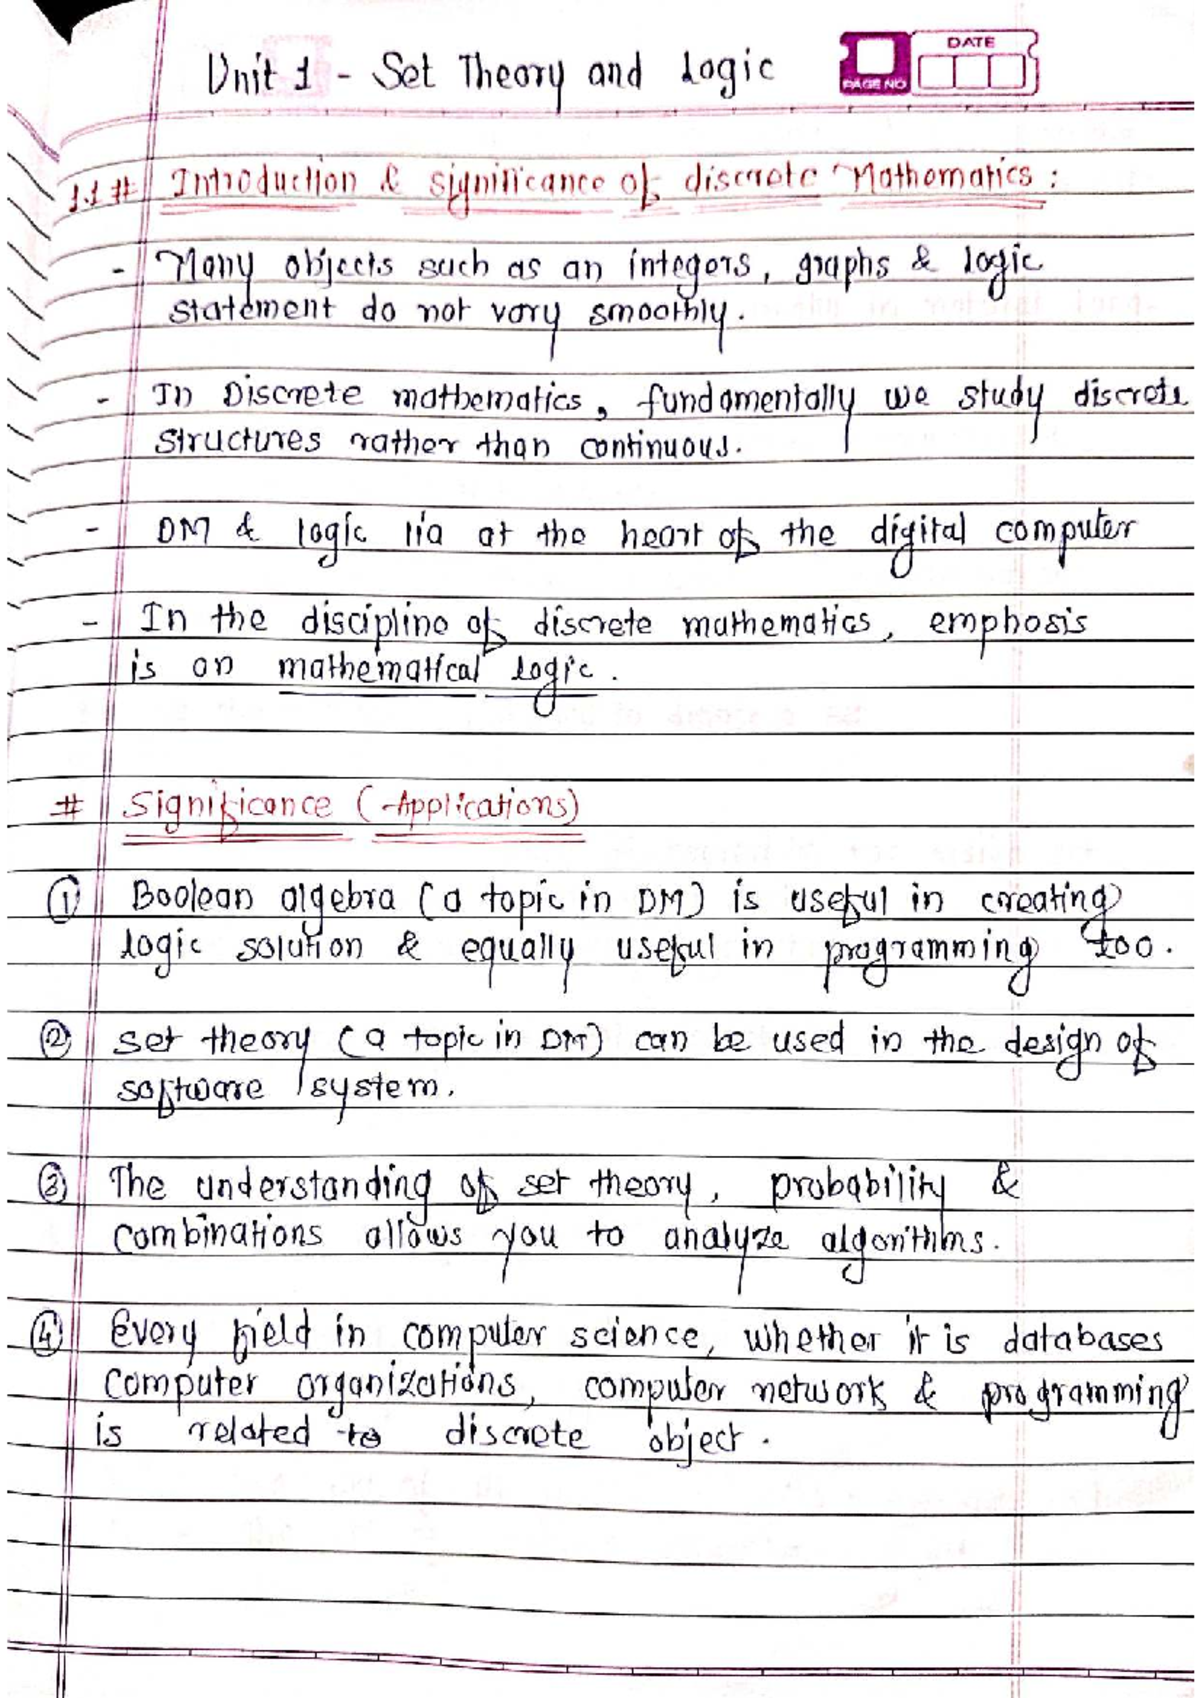 Unit 1 - Set Theory and Logic
PAGE NO
DATE
1.1 # Introduction & significance of discrete Mathematics :
- Many objects such as an integers, graphs & logic
statement do not vary smoothly.
- In Discrete mathematics, fundamentally we study discrete
structures rather than continuous.
- DM & logic lia at the heart of the digital computer
- In the discipline of discrete mathematics, emphasis
is on mathematical logic.
# Significance (Applications)
① Boolean algebra (a topic in DM) is useful in creating
logic solution & equally useful in programming too.
② set theory (a topic in DM) can be used in the design of
software system.
③ The understanding of set theory, probability &
combinations allows you to analyze algorithms.
④ Every field in computer science, whether it is databases
computer organizations, computer network & programming
is related to discrete object.